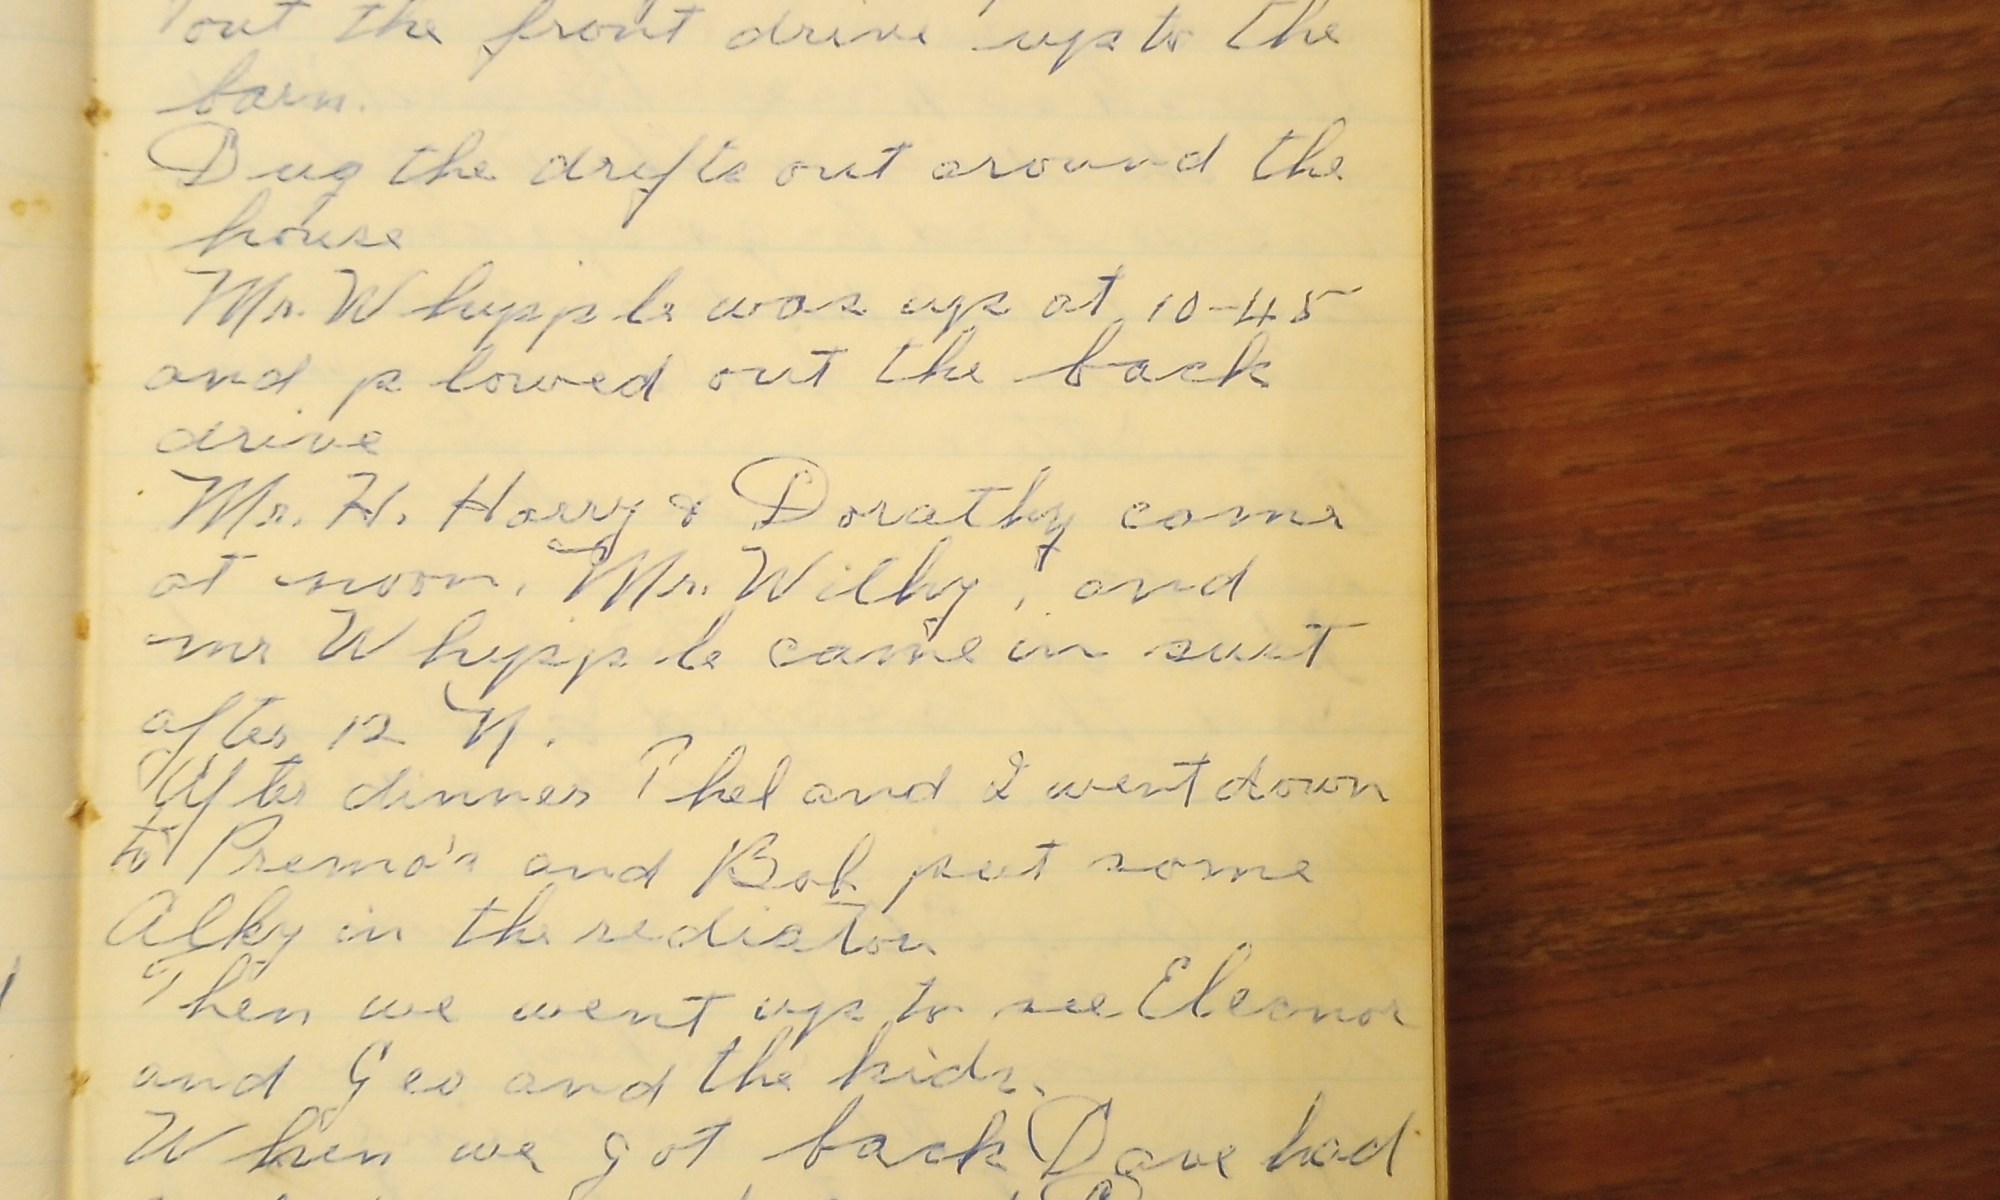 out the front drive up to the
barn.
Dug the drifts out around the
house
Mr. Whipple was up at 10-45
and plowed out the back
drive
Mr. H. Harry & Dorathy came
at noon. Mr. Wilby, and
mr Whipple came in just
after 12 N.
After dinner Phel and I went down
to Premo's and Bob put some
Alky in the rediator
Then we went up to see Eleanor
and Geo and the kids.
When we got back Dave had